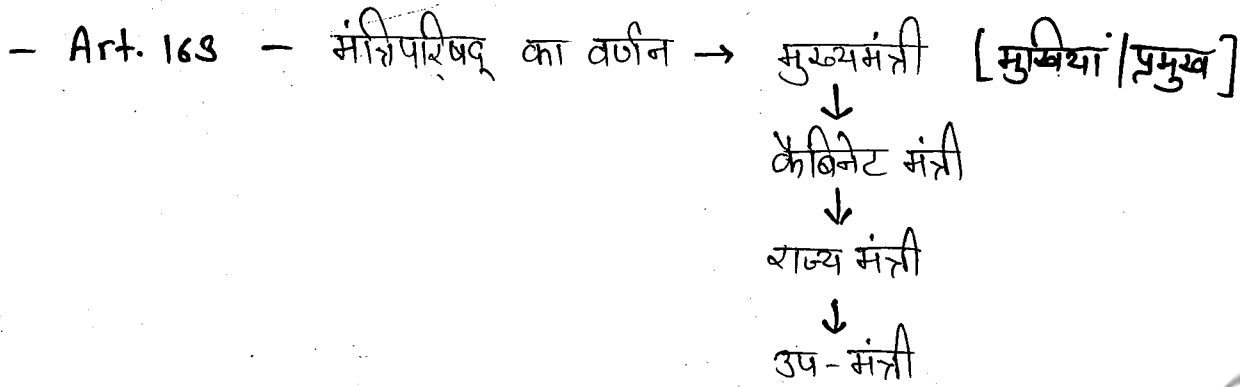 - Art. 163 - मंत्रिपरिषद् का वर्णन → मुख्यमंत्री [मुखियां|प्रमुख]
↓
कैबिनेट मंत्री
↓
राज्य मंत्री
↓
उप-मंत्री